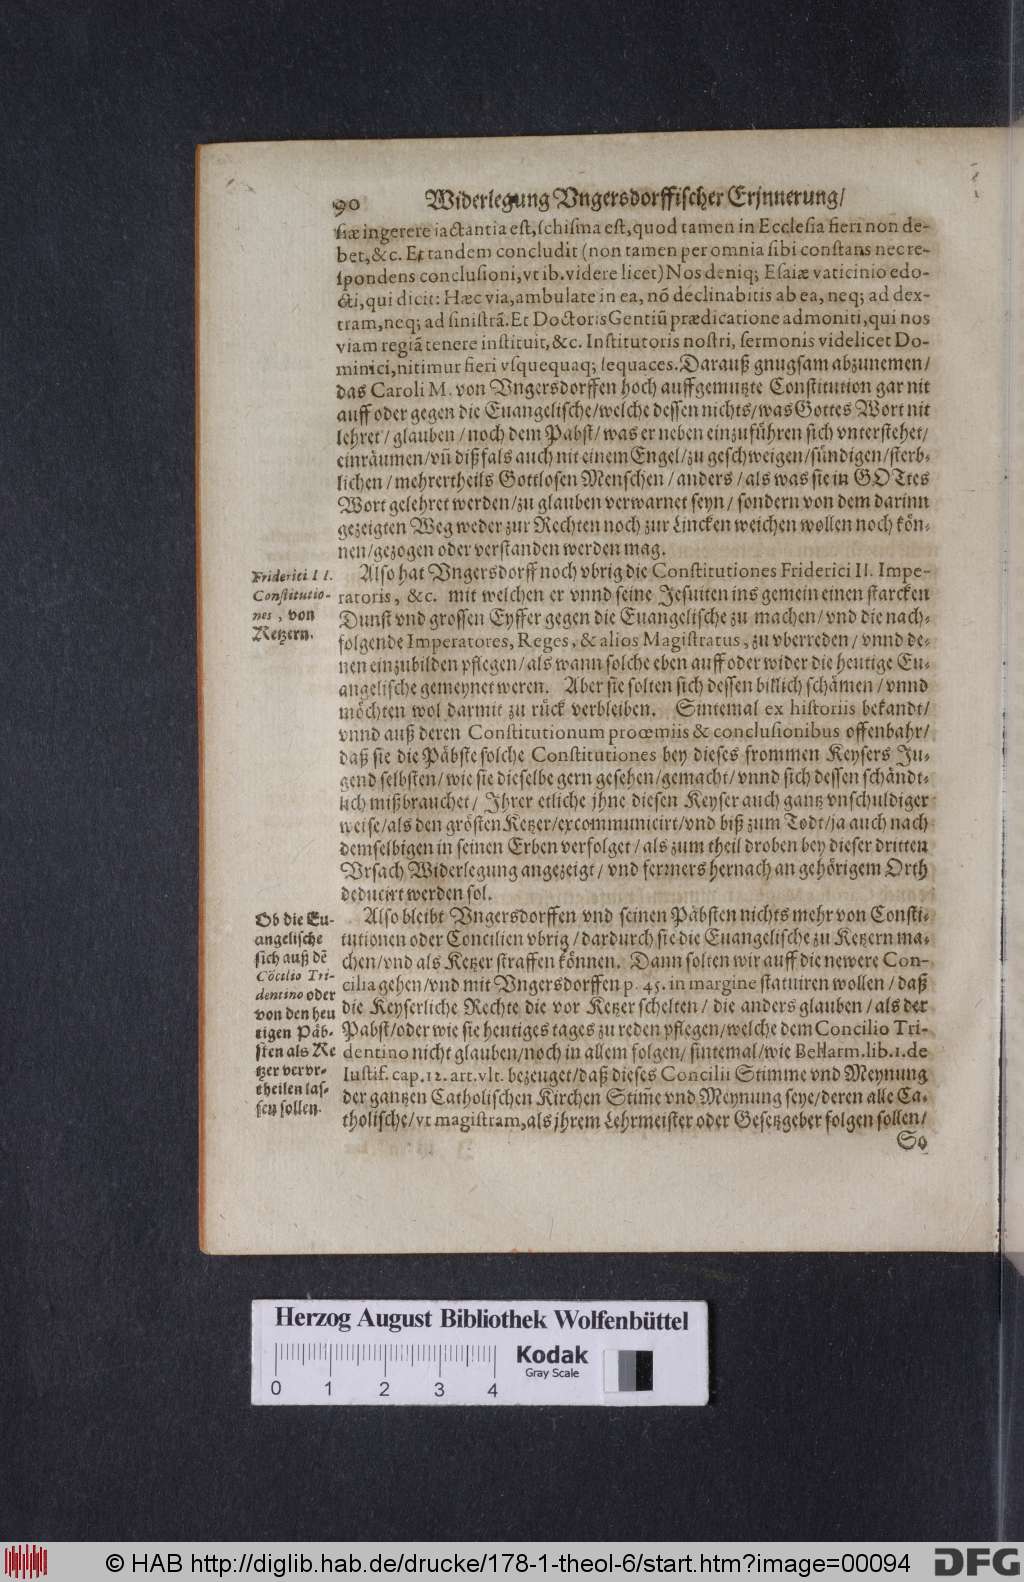 90 Widerlegung Vngersdorffischer Erjnnerung/
siæ ingerere iactantia est, schisma est, quod tamen in Ecclesia fieri non de-
bet, &c. Et tandem concludit (non tamen per omnia sibi constans nec re-
spondens conclusioni, vt ib. videre licet) Nos deniq; Esaiæ vaticinio edo-
cti, qui dicit: Hæc via, ambulate in ea, nō declinabitis ab ea, neq; ad dex-
tram, neq; ad sinistrā. Et Doctoris Gentiū prædicatione admoniti, qui nos
viam regiā tenere instituit, &c. Institutoris nostri, sermonis videlicet Do-
minici, nitimur fieri vsquequaq; sequaces. Darauß gnugsam abzunemen/
das Caroli M. von Vngersdorffen hoch auffgemutzte Constitution gar nit
auff oder gegen die Euangelische/welche dessen nichts/was Gottes Wort nit
lehret/ glauben/noch dem Pabst/ was er neben einzuführen sich vnterstehet/
einräumen/vñ dißfals auch nit einem Engel/zu geschweigen/sündigen/sterb-
lichen/mehrertheils Gottlosen Menschen/anders/als was sie in GOTtes
Wort gelehret werden/zu glauben verwarnet seyn/ sondern von dem darinn
gezeigten Weg weder zur Rechten noch zur Lincken weichen wollen noch kön-
nen/gezogen oder verstanden werden mag.
Friderici II.
Constitutio-
nes, von
Ketzern.
Also hat Vngersdorff noch vbrig die Constitutiones Friderici II. Impe-
ratoris, &c. mit welchen er vnnd seine Jesuiten ins gemein einen starcken
Dunst vnd grossen Eyffer gegen die Euangelische zu machen/vnd die nach-
folgende Imperatores, Reges, & alios Magistratus, zu vberreden/ vnnd de-
nen einzubilden pflegen/als wann solche eben auff oder wider die heutige Eu-
angelische gemeynet weren. Aber sie solten sich dessen billich schämen/vnnd
möchten wol darmit zu rück verbleiben. Sintemal ex historiis bekandt/
vnnd auß deren Constitutionum prooemiis & conclusionibus offenbahr/
daß sie die Päbste solche Constitutiones bey dieses frommen Keysers Ju-
gend selbsten/wie sie dieselbe gern gesehen/gemacht/vnnd sich dessen schändt-
lich mißbrauchet/ Jhrer etliche jhne diesen Keyser auch gantz vnschuldiger
weise/als den grösten Ketzer/excommunicirt/vnd biß zum Todt/ja auch nach
demselbigen in seinen Erben verfolget/als zum theil droben bey dieser dritten
Vrsach Widerlegung angezeigt/ vnd ferrners hernach an gehörigem Orth
deducirt werden sol.
Ob die Eu-
angelische
sich auß dē
Cōcilio Tri-
dentino oder
von den heu
tigen Päb-
sten als Ke
tzer vervr-
theilen las-
sen sollen.
Also bleibt Vngersdorffen vnd seinen Päbsten nichts mehr von Consti-
tutionen oder Concilien vbrig/dardurch sie die Euangelische zu Ketzern ma-
chen/vnd als Ketzer straffen können. Dann solten wir auff die newere Con-
cilia gehen/vnd mit Vngersdorffen p. 45. in margine statuiren wollen/ daß
die Keyserliche Rechte die vor Ketzer schelten/ die anders glauben/als der
Pabst/oder wie sie heutiges tages zu reden pflegen/welche dem Concilio Tri-
dentino nicht glauben/noch in allem folgen/ sintemal/wie Bellarm. lib. 1. de
Iustif. cap. 12. art. vlt. bezeuget/daß dieses Concilii Stimme vnd Meynung
der gantzen Catholischen Kirchen Stim̃e vnd Meynung seye/deren alle Ca-
tholische/vt magistram, als jhrem Lehrmeister oder Gesetzgeber folgen sollen/
So
Herzog August Bibliothek Wolfenbüttel
Kodak
Gray Scale
0 1 2 3 4
© HAB http://diglib.hab.de/drucke/178-1-theol-6/start.htm?image=00094
DFG